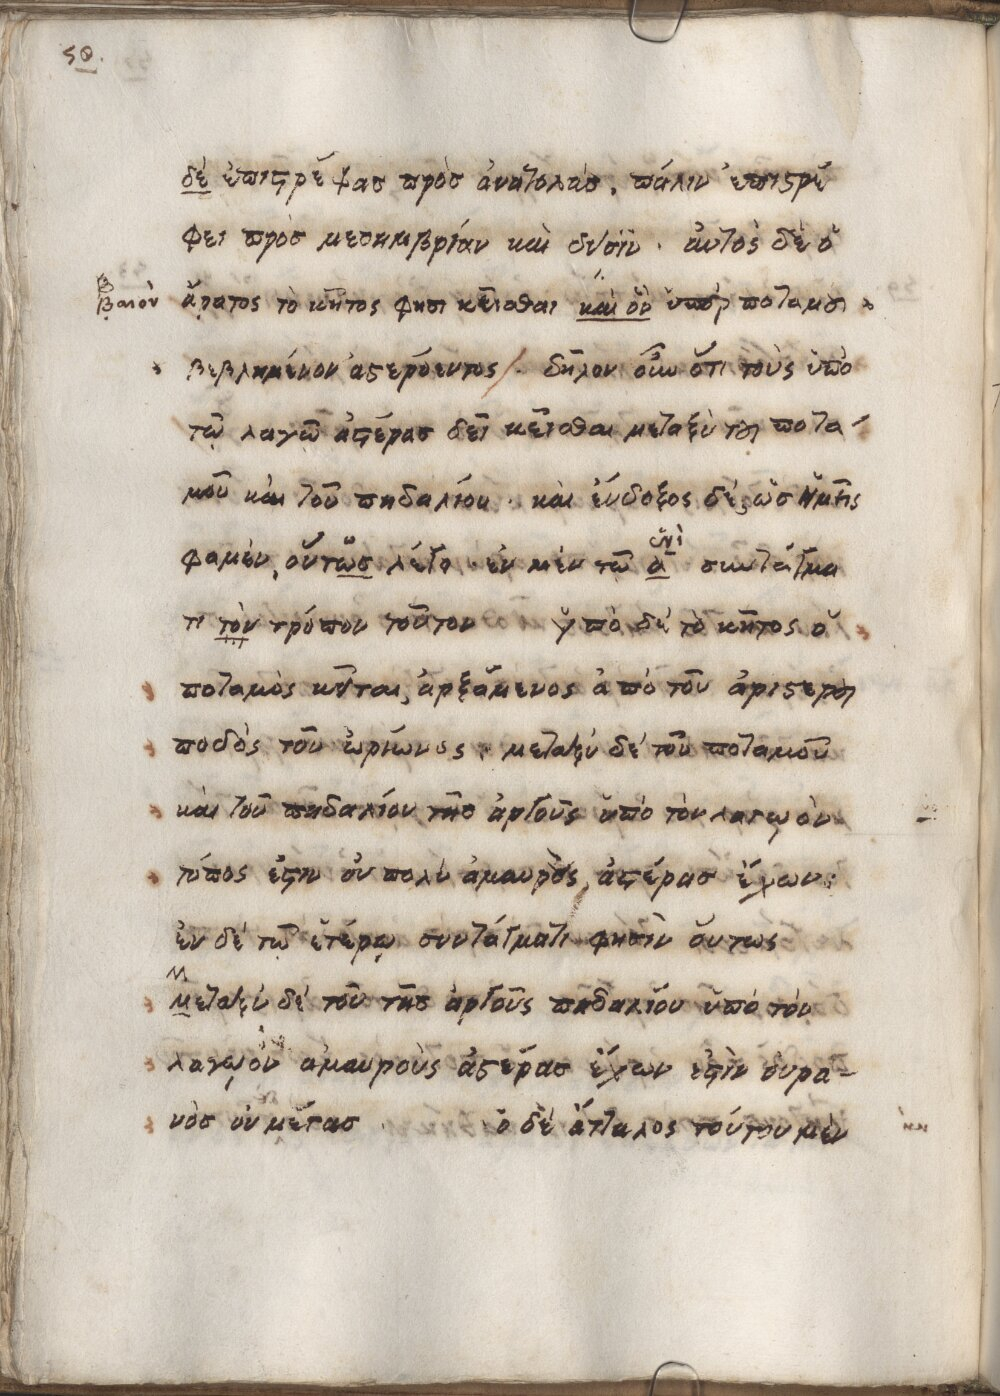 50.
δὲ ἐπιστρέψας πρὸς ἀνατολάς, πάλιν ἐπιστρέ
φει πρὸς μεσημβρίαν καὶ δύσιν. ἀυτὸς δὲ ὁ
βαιὸν ἄρατος τὸ κῆτος φησὶ κεῖσθαι καὶ ὃὸ ὑπὲρ ποταμοῦ
βεβλημένον ἀστερόεντος. δῆλον οὖν ὅτι τοὺς ὑπὸ
τῷ λαγωῷ ἀστέρας δεῖ κεῖσθαι μεταξὺ τοῦ ποτα-
μοῦ καὶ τοῦ πηδαλίου. καὶ ἐύδοξος δέ, ὡς ἡμεῖς
φαμὲν, οὕτως λέγει. ἐν μὲν τῷ α συντάγμα
τι τὸν τρόπον τοῦτον ὑπὸ δὲ τὸ κῆτος ὁ
ποταμὸς κεῖται, ἀρξάμενος ἀπὸ τοῦ ἀριστεροῦ
ποδὸς τοῦ ὠρίωνος. μεταξὺ δὲ τοῦ ποταμοῦ
καὶ τοῦ πηδαλίου τῆς ἀργοῦς ὑπὸ τὸν λαγωὸν
τόπος ἐστὶν οὐ πολὺ ἀμαυρὸς, ἀστέρας ἔχων:
ἐν δὲ τῷ ἑτέρῳ συντάγματι φησὶν ὅυτως
μεταξὺ δὲ τοῦ τῆς ἀργοῦς πηδαλίου ὑπὸ τὸν
λαγωὸν ἀμαυροὺς ἀστέρας ἔχων ἐστὶν ὀυρα-
νὸς οὐ μέγας. ὁ δὲ ἄτταλος τούτου μὲν